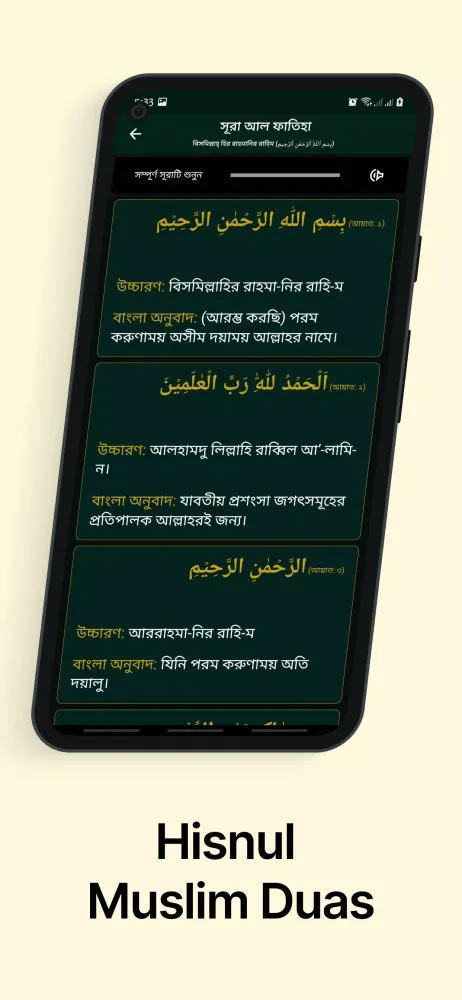 সূরা আল ফাতিহা
বিসমিল্লাহ্ হির রাহমানির রাহিম (بِسْمِ اللَّهِ الرَّحْمَٰنِ الرَّحِيمِ)
সম্পূর্ণ সূরাটি শুনুন
بِسْمِ اللّٰهِ الرَّحْمٰنِ الرَّحِيْمِ (আয়াত: ১)
উচ্চারণ: বিসমিল্লাহির রাহমা-নির রাহি-ম
বাংলা অনুবাদ: (আরম্ভ করছি) পরম
করুণাময় অসীম দয়াময় আল্লাহর নামে।
اَلْحَمْدُ لِلّٰهِ رَبِّ الْعٰلَمِيْنَ (আয়াত: ২)
উচ্চারণ: আলহামদু লিল্লাহি রাব্বিল আ'-লামি-
ন।
বাংলা অনুবাদ: যাবতীয় প্রশংসা জগৎসমূহের
প্রতিপালক আল্লাহরই জন্য।
الرَّحْمٰنِ الرَّحِيْمِ (আয়াত: ৩)
উচ্চারণ: আররাহমা-নির রাহি-ম
বাংলা অনুবাদ: যিনি পরম করুণাময় অতি
দয়ালু।
Hisnul
Muslim Duas